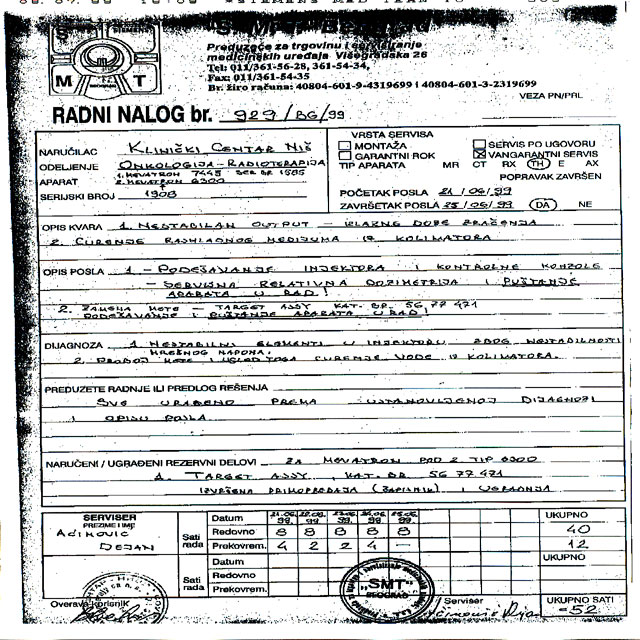 S M T
Preduzeće za trgovinu i servisiranje
medicinskih uređaja Višegradska 26
Tel: 011/361-56-28, 361-54-34,
Fax: 011/361-54-35
Br. žiro računa: 40804-601-9-4319699 i 40804-601-3-2319699
VEZA PN/PRL
RADNI NALOG br. 929/BG/99
NARUČILAC KLINIČKI CENTAR NIŠ
ODELJENJE ONKOLOGIJA - RADIOTERAPIJA
APARAT 1. MEVATRON 7445 SER BR 1585
2. MEVATRON 6300
SERIJSKI BROJ 1908
VRSTA SERVISA
MONTAŽA SERVIS PO UGOVORU
GARANTNI ROK VANGARANTNI SERVIS
TIP APARATA MR CT RX TH E AX
POPRAVAK ZAVRŠEN
POČETAK POSLA 21/06/99
ZAVRŠETAK POSLA 25/06/99 DA NE
OPIS KVARA 1. NESTABILAN OUTPUT - IZLAZNE DOZE ZRAČENJA
2. CURENJE RASHLADNOG MEDIJUMA IZ KOLIMATORA
OPIS POSLA 1 - PODEŠAVANJE INJEKTORA I KONTROLNE KONZOLE
- SERVISNA RELATIVNA DOZIMETRIJA I PUŠTANJE
APARATA U RAD!
2. ZAMENA METE - TARGET ASSY KAT. BR. 56 77 471
PODEŠAVANJE I PUŠTANJE APARATA U RAD!
DIJAGNOZA 1. NESTABILNI ELEMENTI U INJEKTORU ZBOG NESTABILNOSTI
MREŽNOG NAPONA.
2. PROBOJ METE I USLED TOGA CURENJE VODE IZ KOLIMATORA.
PREDUZETE RADNJE ILI PREDLOG REŠENJA
SVE URAĐENO PREMA USTANOVLJENOJ DIJAGNOZI
I OPISU POSLA
NARUČENI / UGRAĐENI REZERVNI DELOVI ZA MEVATRON POD 2 TIP 6300
1. TARGET ASSY, KAT. BR 56 77 471
IZVRŠENA PRIMOPREDAJA (ZAPISNIK) I UGRADNJA
SERVISER
PREZIME I IME
AĆIMOVIĆ
DEJAN
Sati rada
Datum 21.06. 99. 22.06. 99 23.06. 99. 24.06. 99. 25.06. 99. UKUPNO
Redovno 8 8 8 8 8 40
Prekovrem. 4 2 2 4 - 12
Sati rada
Datum UKUPNO
Redovno
Prekovrem.
"SMT"
BEOGRAD
Overava korisnik
Serviser
UKUPNO SATI
=52